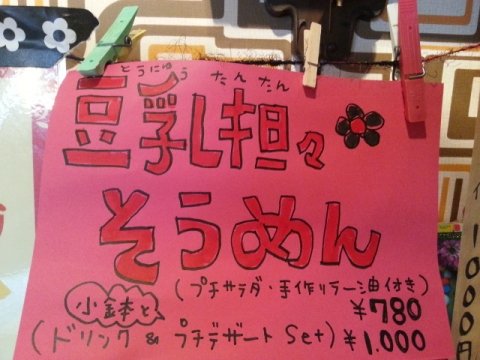 とうにゅう たんたん
豆乳担々
そうめん
(プチサラダ・手作りラー油付き)
¥780
小鉢と
(ドリンク & プチデザート Set) ¥1,000
1000円